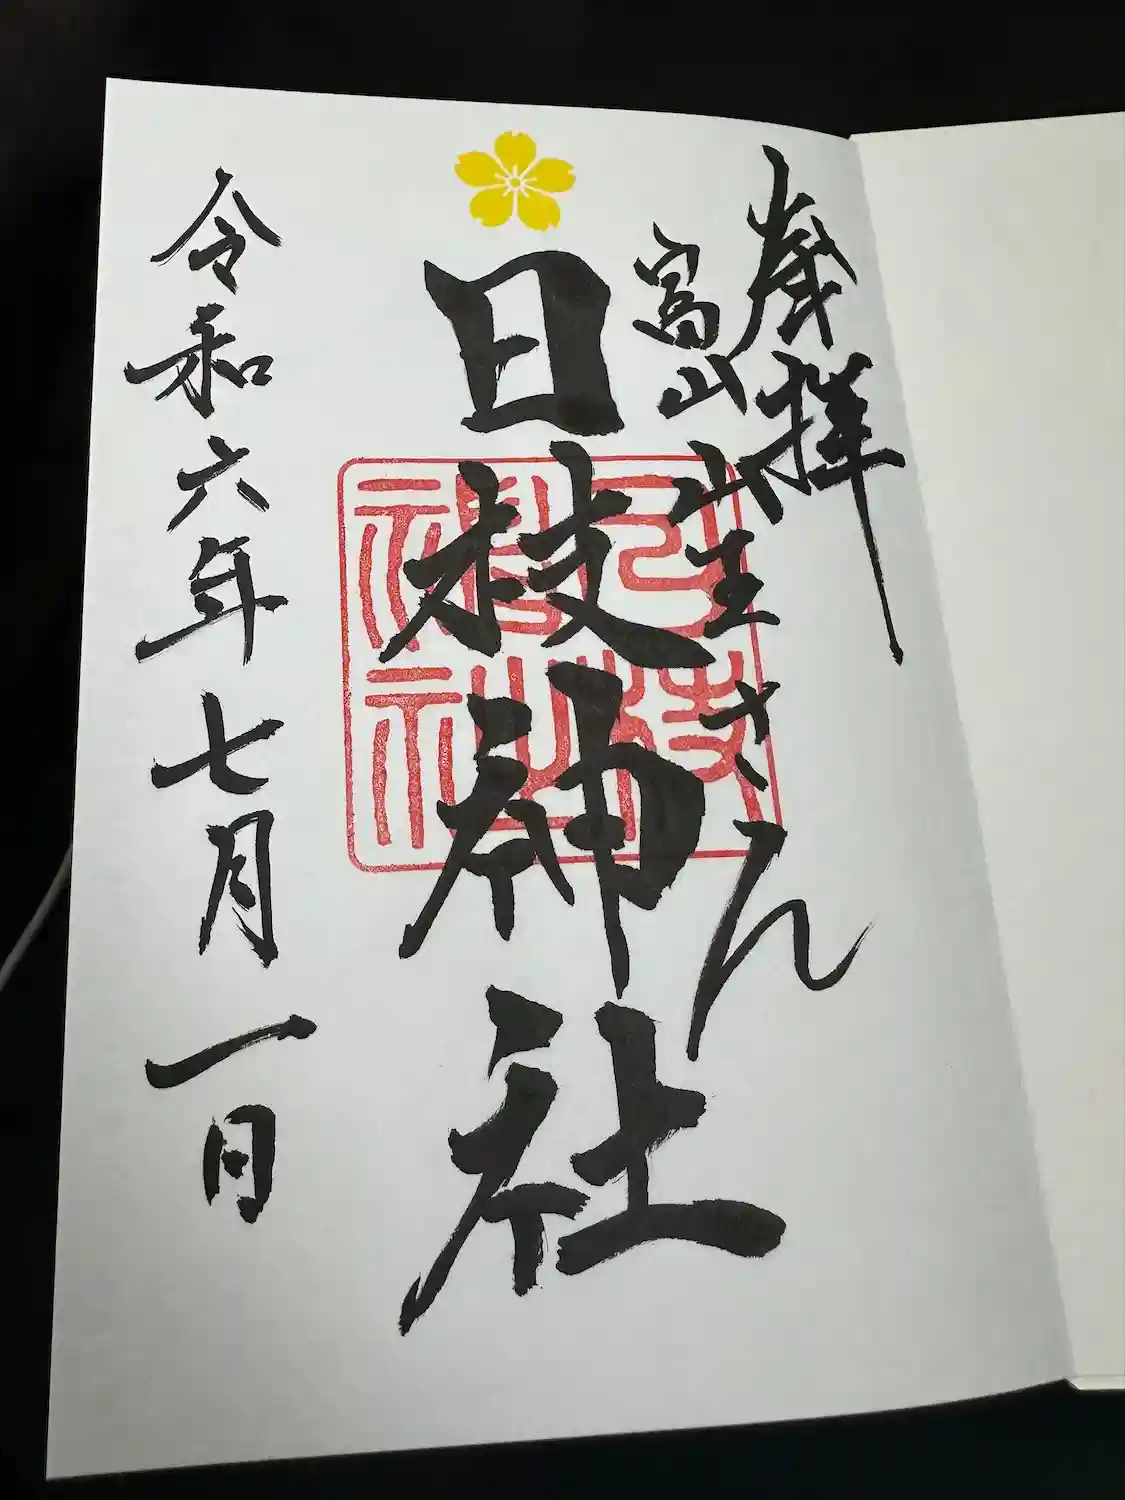 奉拝
富山山王さん
日枝神社
日枝神社
令和六年七月一日